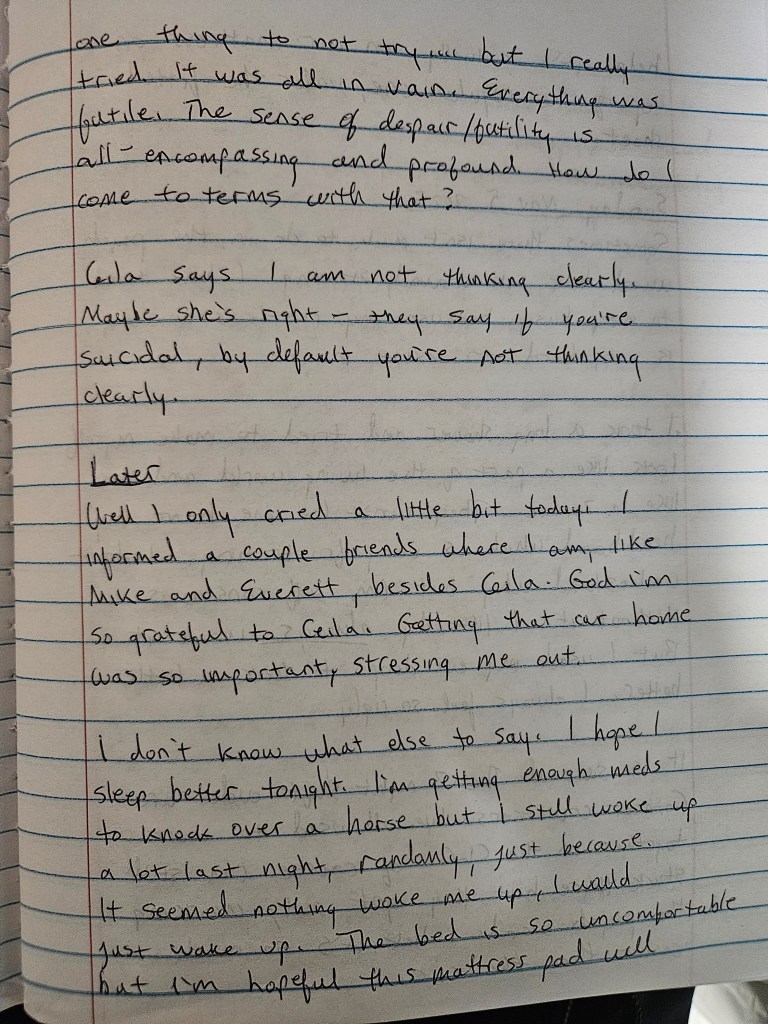 one thing to not try.... but I really
tried. It was all in vain. Everything was
futile. The sense of despair/futility is
all-encompassing and profound. How do I
come to terms with that?
Ceila says I am not thinking clearly.
Maybe she's right - they say if you're
suicidal, by default you're not thinking
clearly.
Later
Well I only cried a little bit today. I
informed a couple friends where I am, like
Mike and Everett, besides Ceila. God i'm
so grateful to Ceila. Getting that car home
was so important, stressing me out.
I don't know what else to say. I hope I
sleep better tonight. I'm getting enough meds
to knock over a horse but i still woke up
a lot last night, randomly, just because.
It seemed nothing woke me up, I would
just wake up. The bed is so uncomfortable
but i'm hopeful this mattress pad will